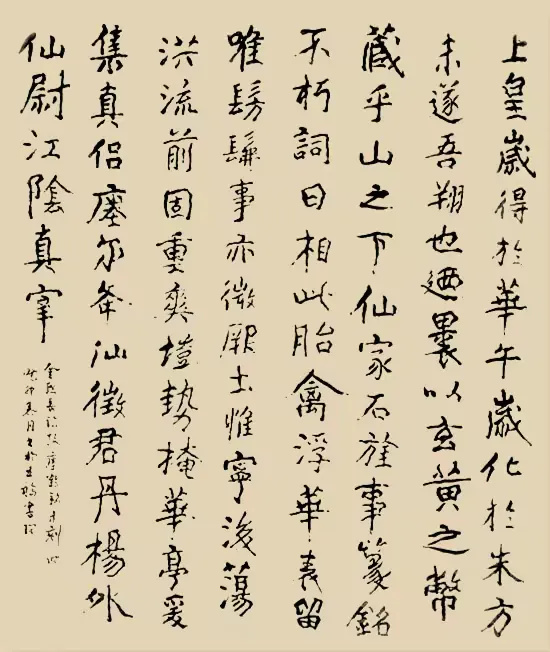 上皇歲得於華午歲化於朱方
未遂吾翔也迺裹以玄黄之幣
藏乎山之下仙家石旌事篆銘
不朽詞曰相此胎禽浮華表留
唯髣髴事亦微厥土惟寧後蕩
洪流前固重爽塏勢掩華亭爰
集真侣瘞尔汕徵君丹楊外
仙尉江陰真宰
癸卯春月